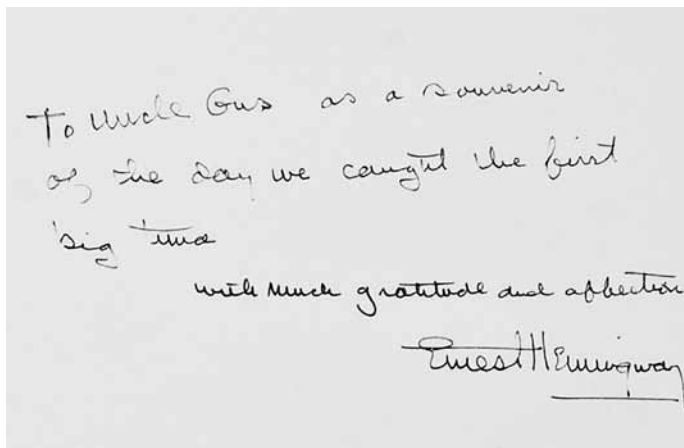 To Uncle Gus as a souvenir
of the day we caught the first
big tuna
with much gratitude and affection
Ernest Hemingway